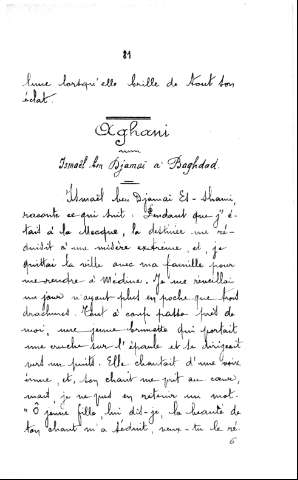 81
lune lorsqu'elle brille de tout son
éclat.
Aghani
Ismaël ben Djamaï à Baghdad.
Ismaël ben Djamaï El-Shami,
raconte ce qui suit : Pendant que j'é-
tait à la Mecque, la destinée me ré-
duisit à une misère extrême, et, je
quittai la ville avec ma famille pour
me rendre à Médine. Je me réveillai
un jour n'ayant plus en poche que trois
drachmes. Tout à coup passa près de
moi, une jeune brunette qui portait
une cruche sur l'épaule et se dirigeait
vers un puits. Elle chantait d'une voix
émue, et, son chant me prit au cœur,
mais je ne pus en retenir un mot.
"Ô jeune fille, lui dis-je, la beauté de
ton chant m'a séduit, veux-tu le ré-
6